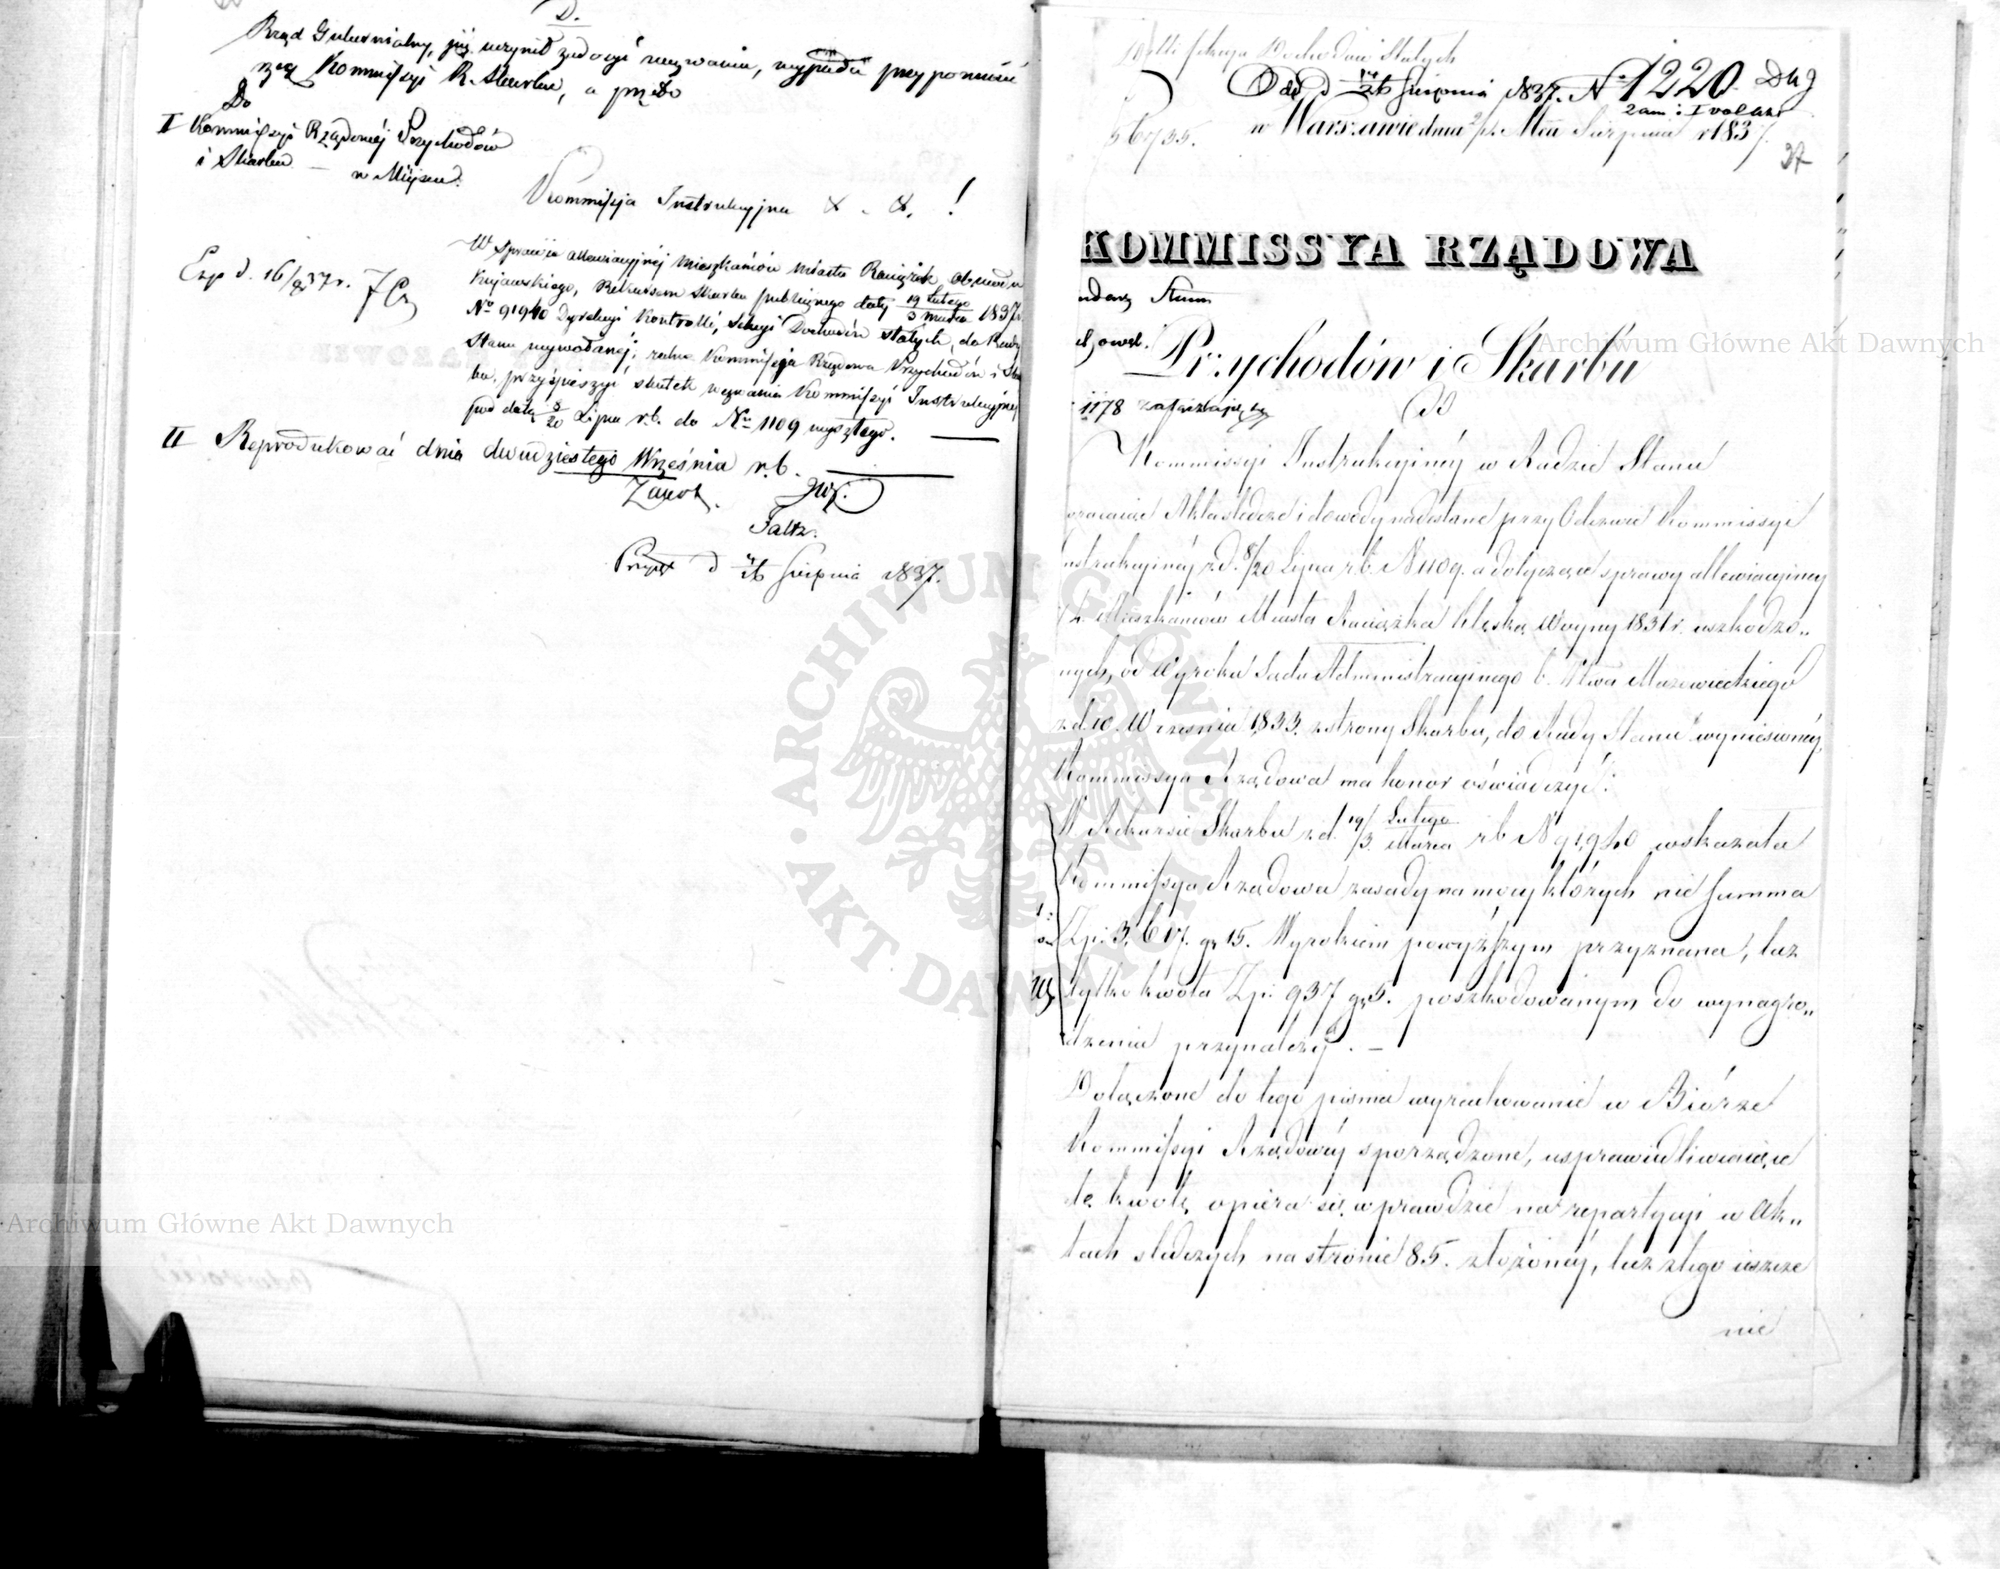 D.
Rząd Gubernialny, już uczynił zadosyć wezwaniu, wypada przypomnieć
Kommissyi R. Skarbu, a przeto
Do
I Kommissyi Rządowéj Przychodów
i Skarbu — w Miejscu.
Kommissja Instrukcyjna
Exp d. 16/9 37 r.
W sprawie allewiacyjnéj mieszkańców miasta Raciążek, Obwodu
Kujawskiego, Rekursem Skarbu publicznego daty 19 Lutego / 3 Marca 1837 r.
No 91940 Dyrekcyi Kontrolli, Sekcyi Dochodów stałych, do Rady
Stanu wywołanéj; zechce Kommissja Rządowa Przychodów i Skar
bu, przyśpieszyć skutek wezwania Kommissyi Instrukcyjnej
pod datą 8/20 Lipca r.b. do No 1109 wyszłego. —
II Reprodukować dnia dwudziestego Września r.b. —
Faltz.
d 14/26 Sierpnia 1837.
Sekcya Dochodów Stałych
d 14/26 Sierpnia 1837. No 1220
2 am: I vol akt
w Warszawie dnia 9/21 Mca Sierpnia r 1837.
56735.
37
KOMMISSYA RZĄDOWA
Przychodów i Skarbu
Archiwum Główne Akt Dawnych
1178
Do
Kommissyi Instrukcyjnéy w Radzie Stanu
Akta śledcze i dowody nadesłane przy Odezwie Kommissyi
Instrukcyjnéy z d. 8/20 Lipca r.b. N 1109. a dotyczące sprawy allewiacyjnéy
Mieszkańców Miasta Raciążka klęską Woyny 1831 r. uszkodzo„
nych, od Wyroku Sądu Administracyjnego b. Wtwa Mazowieckiego
z d. 10. Września 1833. z strony Skarbu, do Rady Stanu wyniesionéy,
Kommissya Rządowa ma honor oświadczyć:
W Rekursie Skarbu z d. 19/3. Lutego/Marca r b N 91,940 wskazała
Kommissya Rządowa zasady na mocy których nie Summa
Zp: 3,617. gr 15. Wyrokiem powyższym przyznana, lecz
tylko kwota Zp: 937 gr 5. poszkodowanym do wynagro„
dzenia przynależy. —
Dołączone do tego pisma wyrachowanie w Biórze
Kommissyi Rządowéy sporządzone, usprawiedliwiaiące
tę kwotę opiera się wprawdzie na repartycyi w Ak„
tach śledczych na stronie 85. złożonéy, lecz z tego ieszcze
nie
ARCHIWUM GŁÓWNE AKT DAWNYCH
Archiwum Główne Akt Dawnych